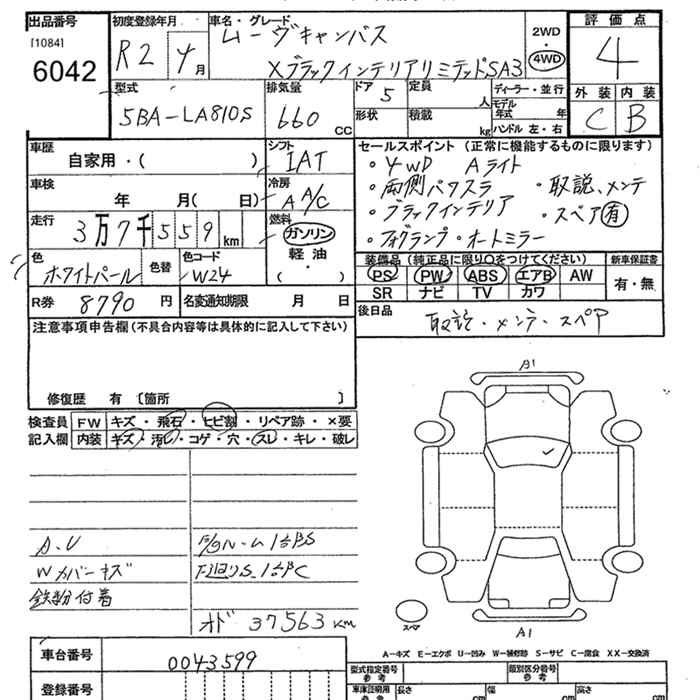 出品番号
[1084]
6042
初度登録年月
R2年4月
車名・グレード
ムーヴキャンバス
Xブラックインテリアリミテッド SA3
2WD
・
4WD
評価点
4
型式
5BA-LA810S
排気量
660 CC
ドア
5
定員
人
形状
積載
kg
ディーラー・並行
モデル年式 年
ハンドル 左・右
外装 内装
C B
車歴
自家用・( )
シフト
IAT
車検
年 月( 日)
冷房
A A/C
走行
3万7千559km
燃料
ガソリン
軽・油
・( )
色
ホワイトパール
色替
色コード
W24
R券 8790円
名変通知期限 月 日
セールスポイント (正常に機能するものに限ります)
・4WD Aライト
・両側パワスラ ・取説、メンテ
・ブラックインテリア ・スペア有
・フォグランプ・オートミラー
装備品 (純正品に限り○をつけてください)
新車保証書
PS PW ABS エアB AW
SR ナビ TV カワ
有・無
後日品
取説・メンテ・スペア
注意事項申告欄(不具合内容等は具体的に記入して下さい)
修復歴 有 〔箇所 〕
検査員記入欄
FW キズ・飛石・ヒビ割・リペア跡・×要
内装 キズ・汚れ・コゲ・穴・スレ・キレ・破レ
A.U
Wカバーキズ
鉄粉付着
下廻りS.1部C
オド 37563km
A1
スペア
A1
A-キズ E-エクボ U-凹み W-補修跡 S-サビ C-腐食 XX-交換済
車台番号
0043599
登録番号
型式指定番号
参考
類別区分番号
参考
車庫証明用
参考
長さ cm
幅 cm
高さ cm